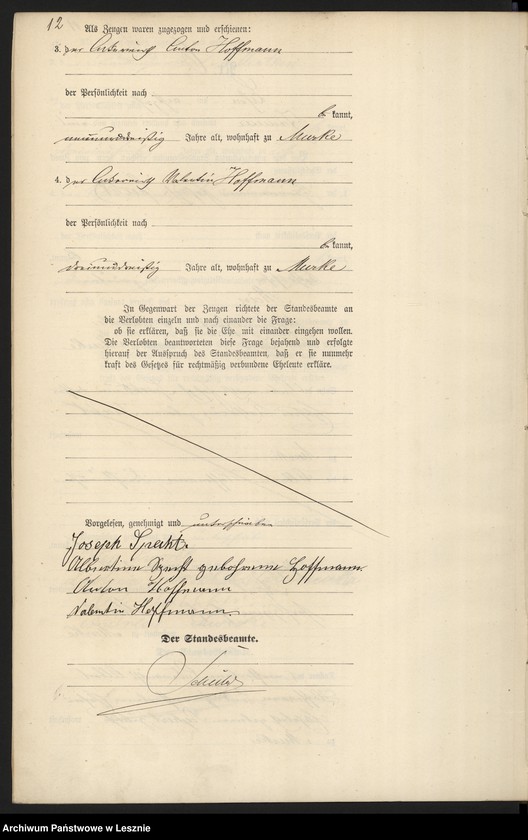 12
Als Zeugen waren zugezogen und erschienen:
3. der Anton Hoffmann
der Persönlichkeit nach
be kannt,
neununddreißig Jahre alt, wohnhaft zu Murke
4. der Valentin Hoffmann
der Persönlichkeit nach
be kannt,
dreiunddreißig Jahre alt, wohnhaft zu Murke
In Gegenwart der Zeugen richtete der Standesbeamte an
die Verlobten einzeln und nach einander die Frage:
ob sie erklären, daß sie die Ehe mit einander eingehen wollen.
Die Verlobten beantworteten diese Frage bejahend und erfolgte
hierauf der Ausspruch des Standesbeamten, daß er sie nunmehr
kraft des Gesetzes für rechtmäßig verbundene Eheleute erkläre.
Vorgelesen, genehmigt und unterschrieben
Joseph Specht.
Albertine Specht geborene Hoffmann
Anton Hoffmann
Valentin Hoffmann
Der Standesbeamte.
Archiwum Państwowe w Lesznie